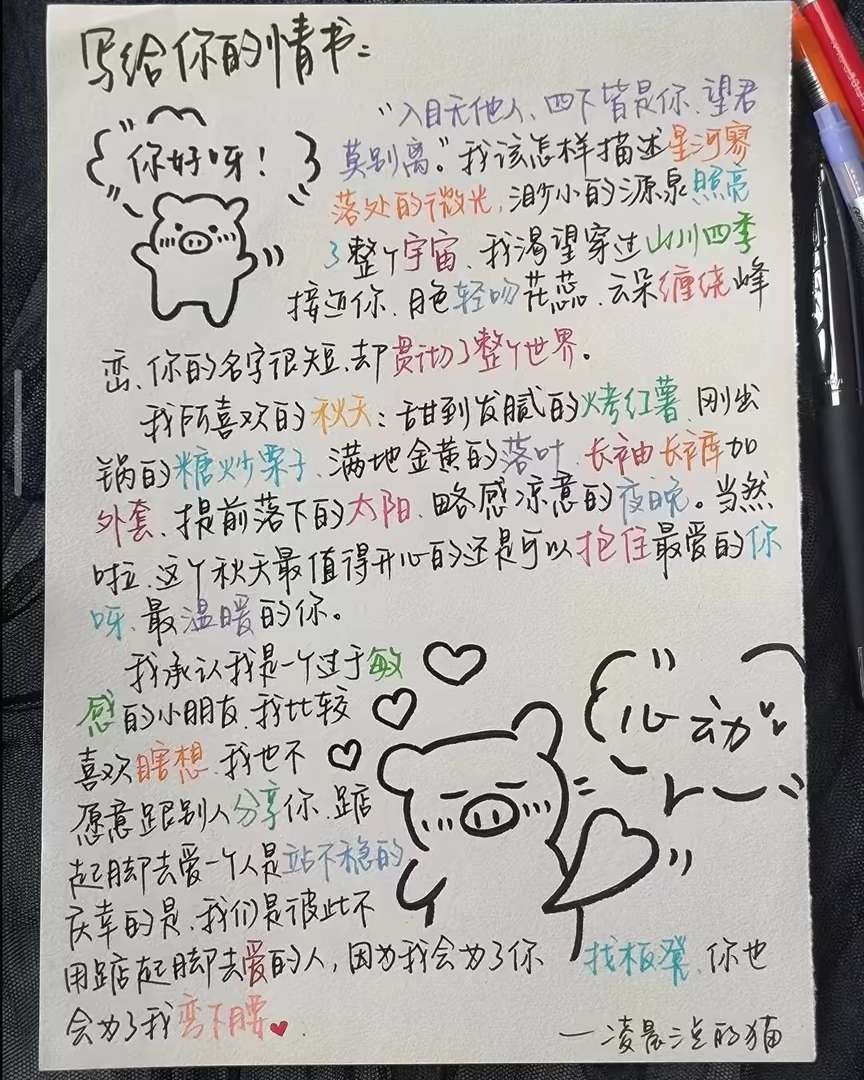 写给你的情书：
你好呀！
“入目无他人、四下皆是你、望君
莫别离。”我该怎样描述星河寥
落处的微光，渺小的源泉照亮
了整个宇宙、我渴望穿过山川四季
接近你、月色轻吻花蕊、云朵缠绕峰
峦、你的名字很短、却贯彻了整个世界。
我所喜欢的秋天：甜到发腻的烤红薯、刚出
锅的糖炒栗子、满地金黄的落叶、长袖长裤加
外套、提前落下的太阳、略感凉意的夜晚。当然
啦、这个秋天最值得开心的还是可以抱住最爱的你
呀、最温暖的你。
我承认我是一个过于敏
感的小朋友、我比较
喜欢瞎想、我也不
愿意跟别人分享你、踮
起脚去爱一个人是站不稳的
庆幸的是、我们是彼此不
用踮起脚去爱的人，因为我会为了你 找板凳、你也
会为了我弯下腰
心动
一凌晨点的猫